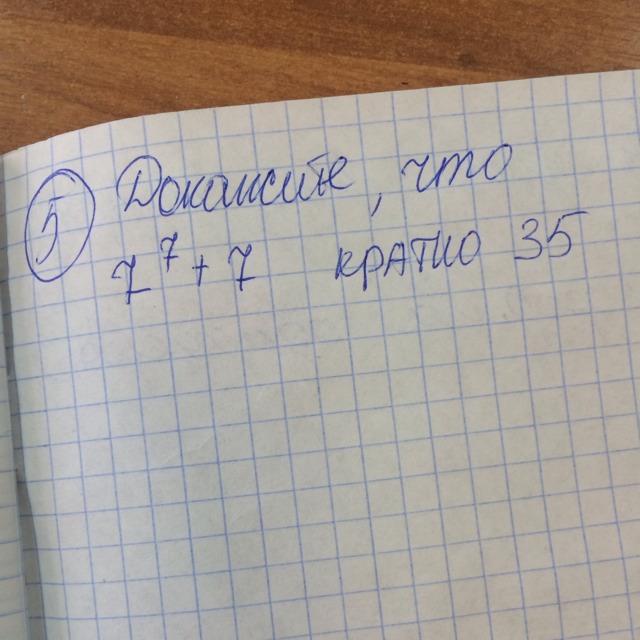 5 Докажите, что
7⁷ + 7 кратно 35